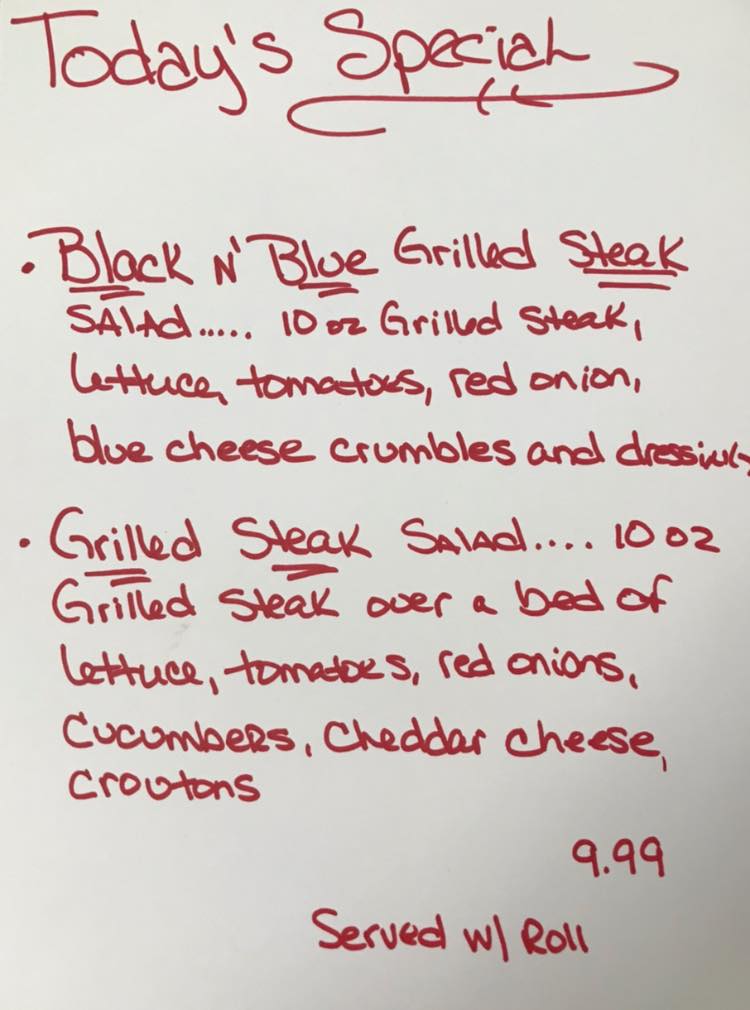 Today's Special
• Black N' Blue Grilled Steak
Salad..... 10 oz Grilled Steak,
lettuce, tomatoes, red onion,
blue cheese crumbles and dressing
• Grilled Steak Salad.... 10 oz
Grilled Steak over a bed of
lettuce, tomatoes, red onions,
Cucumbers, Cheddar cheese,
Croutons
9.99
Served w/ Roll